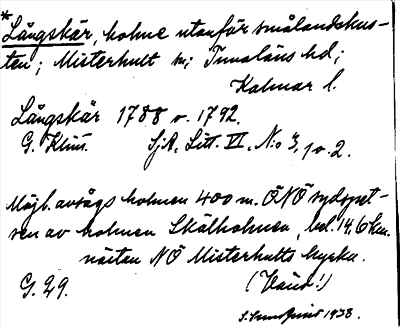 * Långskär, holme utanför smålandskus-
ten; Misterhult sn; Tunaläns hd;
Kalmar l.
Långskär 1788 o. 1792.
G. Klint. Sj.A. Litt. VI, No 3, 1 o. 2.
Möjl. avsågs holmen 400 m. ÖNÖ sydspet-
sen av holmen Skälholmen, bel. 14,6 km.
nästan NÖ Misterhults kyrka.
G. 29. (Vänd!)
1938.